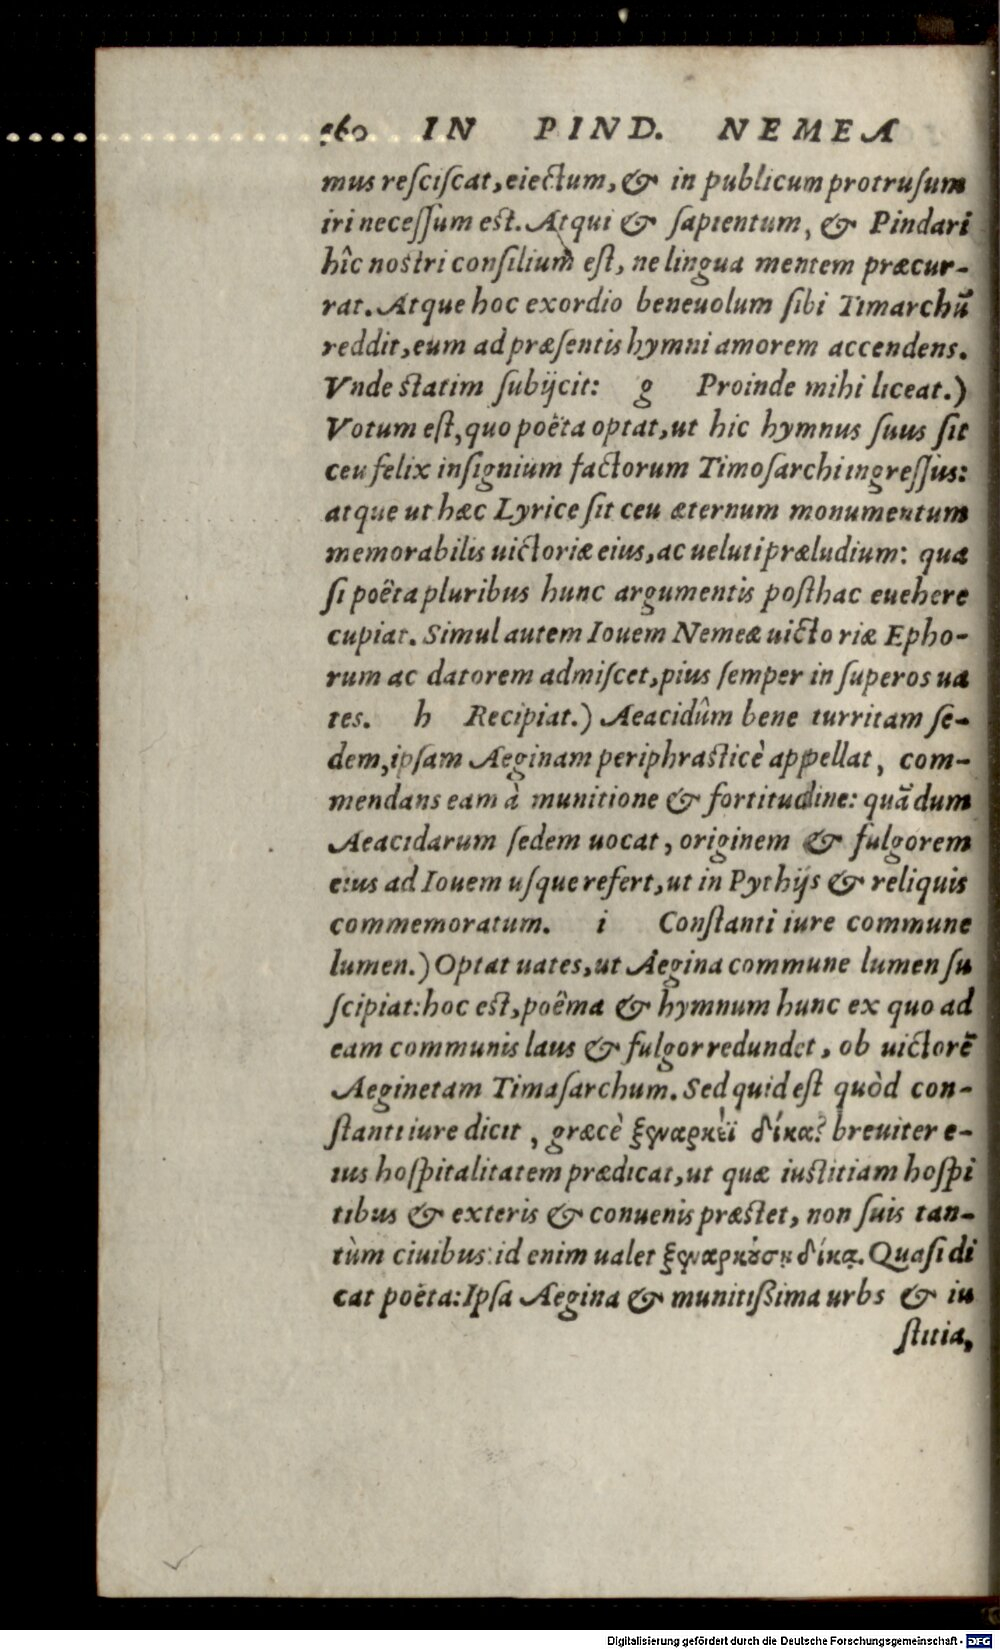 560 IN PIND. NEMEA
mus resciscat, eiectum, & in publicum protrusum
iri necessum est. Atqui & sapientum, & Pindari
hîc nostri consilium est, ne lingua mentem præcur-
rat. Atque hoc exordio beneuolum sibi Timarchū
reddit, eum ad præsentis hymni amorem accendens.
Vnde statim subijcit: g Proinde mihi liceat.)
Votum est, quo poëta optat, ut hic hymnus suus sit
ceu felix insignium factorum Timosarchi ingressus:
atque ut hæc Lyrice sit ceu æternum monumentum
memorabilis uictoriæ eius, ac ueluti præludium: qua
si poëta pluribus hunc argumentis posthac euehere
cupiat. Simul autem Iouem Nemeæ uictoriæ Epho-
rum ac datorem admiscet, pius semper in superos ua
tes. h Recipiat.) Aeacidûm bene turritam se-
dem, ipsam Aeginam periphrasticè appellat, com-
mendans eam à munitione & fortitudine: quā dum
Aeacidarum sedem uocat, originem & fulgorem
eius ad Iouem usque refert, ut in Pythijs & reliquis
commemoratum. i Constanti iure commune
lumen.) Optat uates, ut Aegina commune lumen su
scipiat: hoc est, poëma & hymnum hunc ex quo ad
eam communis laus & fulgor redundet, ob uictorē
Aeginetam Timasarchum. Sed quid est quòd con-
stanti iure dicit, græcè ξεναρκέϊ δίκα? breuiter e-
ius hospitalitatem prædicat, ut quæ iustitiam hospi
tibus & exteris & conuenis præstet, non suis tan-
tùm ciuibus: id enim ualet ξεναρκούσῃ δίκᾳ. Quasi di
cat poëta: Ipsa Aegina & munitißima urbs & iu
stitia,
Digitalisierung gefördert durch die Deutsche Forschungsgemeinschaft - DFG